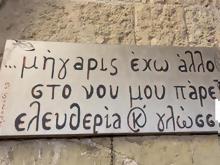 ...μήγαρις ἔχω ἄλλο
στο νου μου πάρε
ελευθερία κ̓ γλώσσ